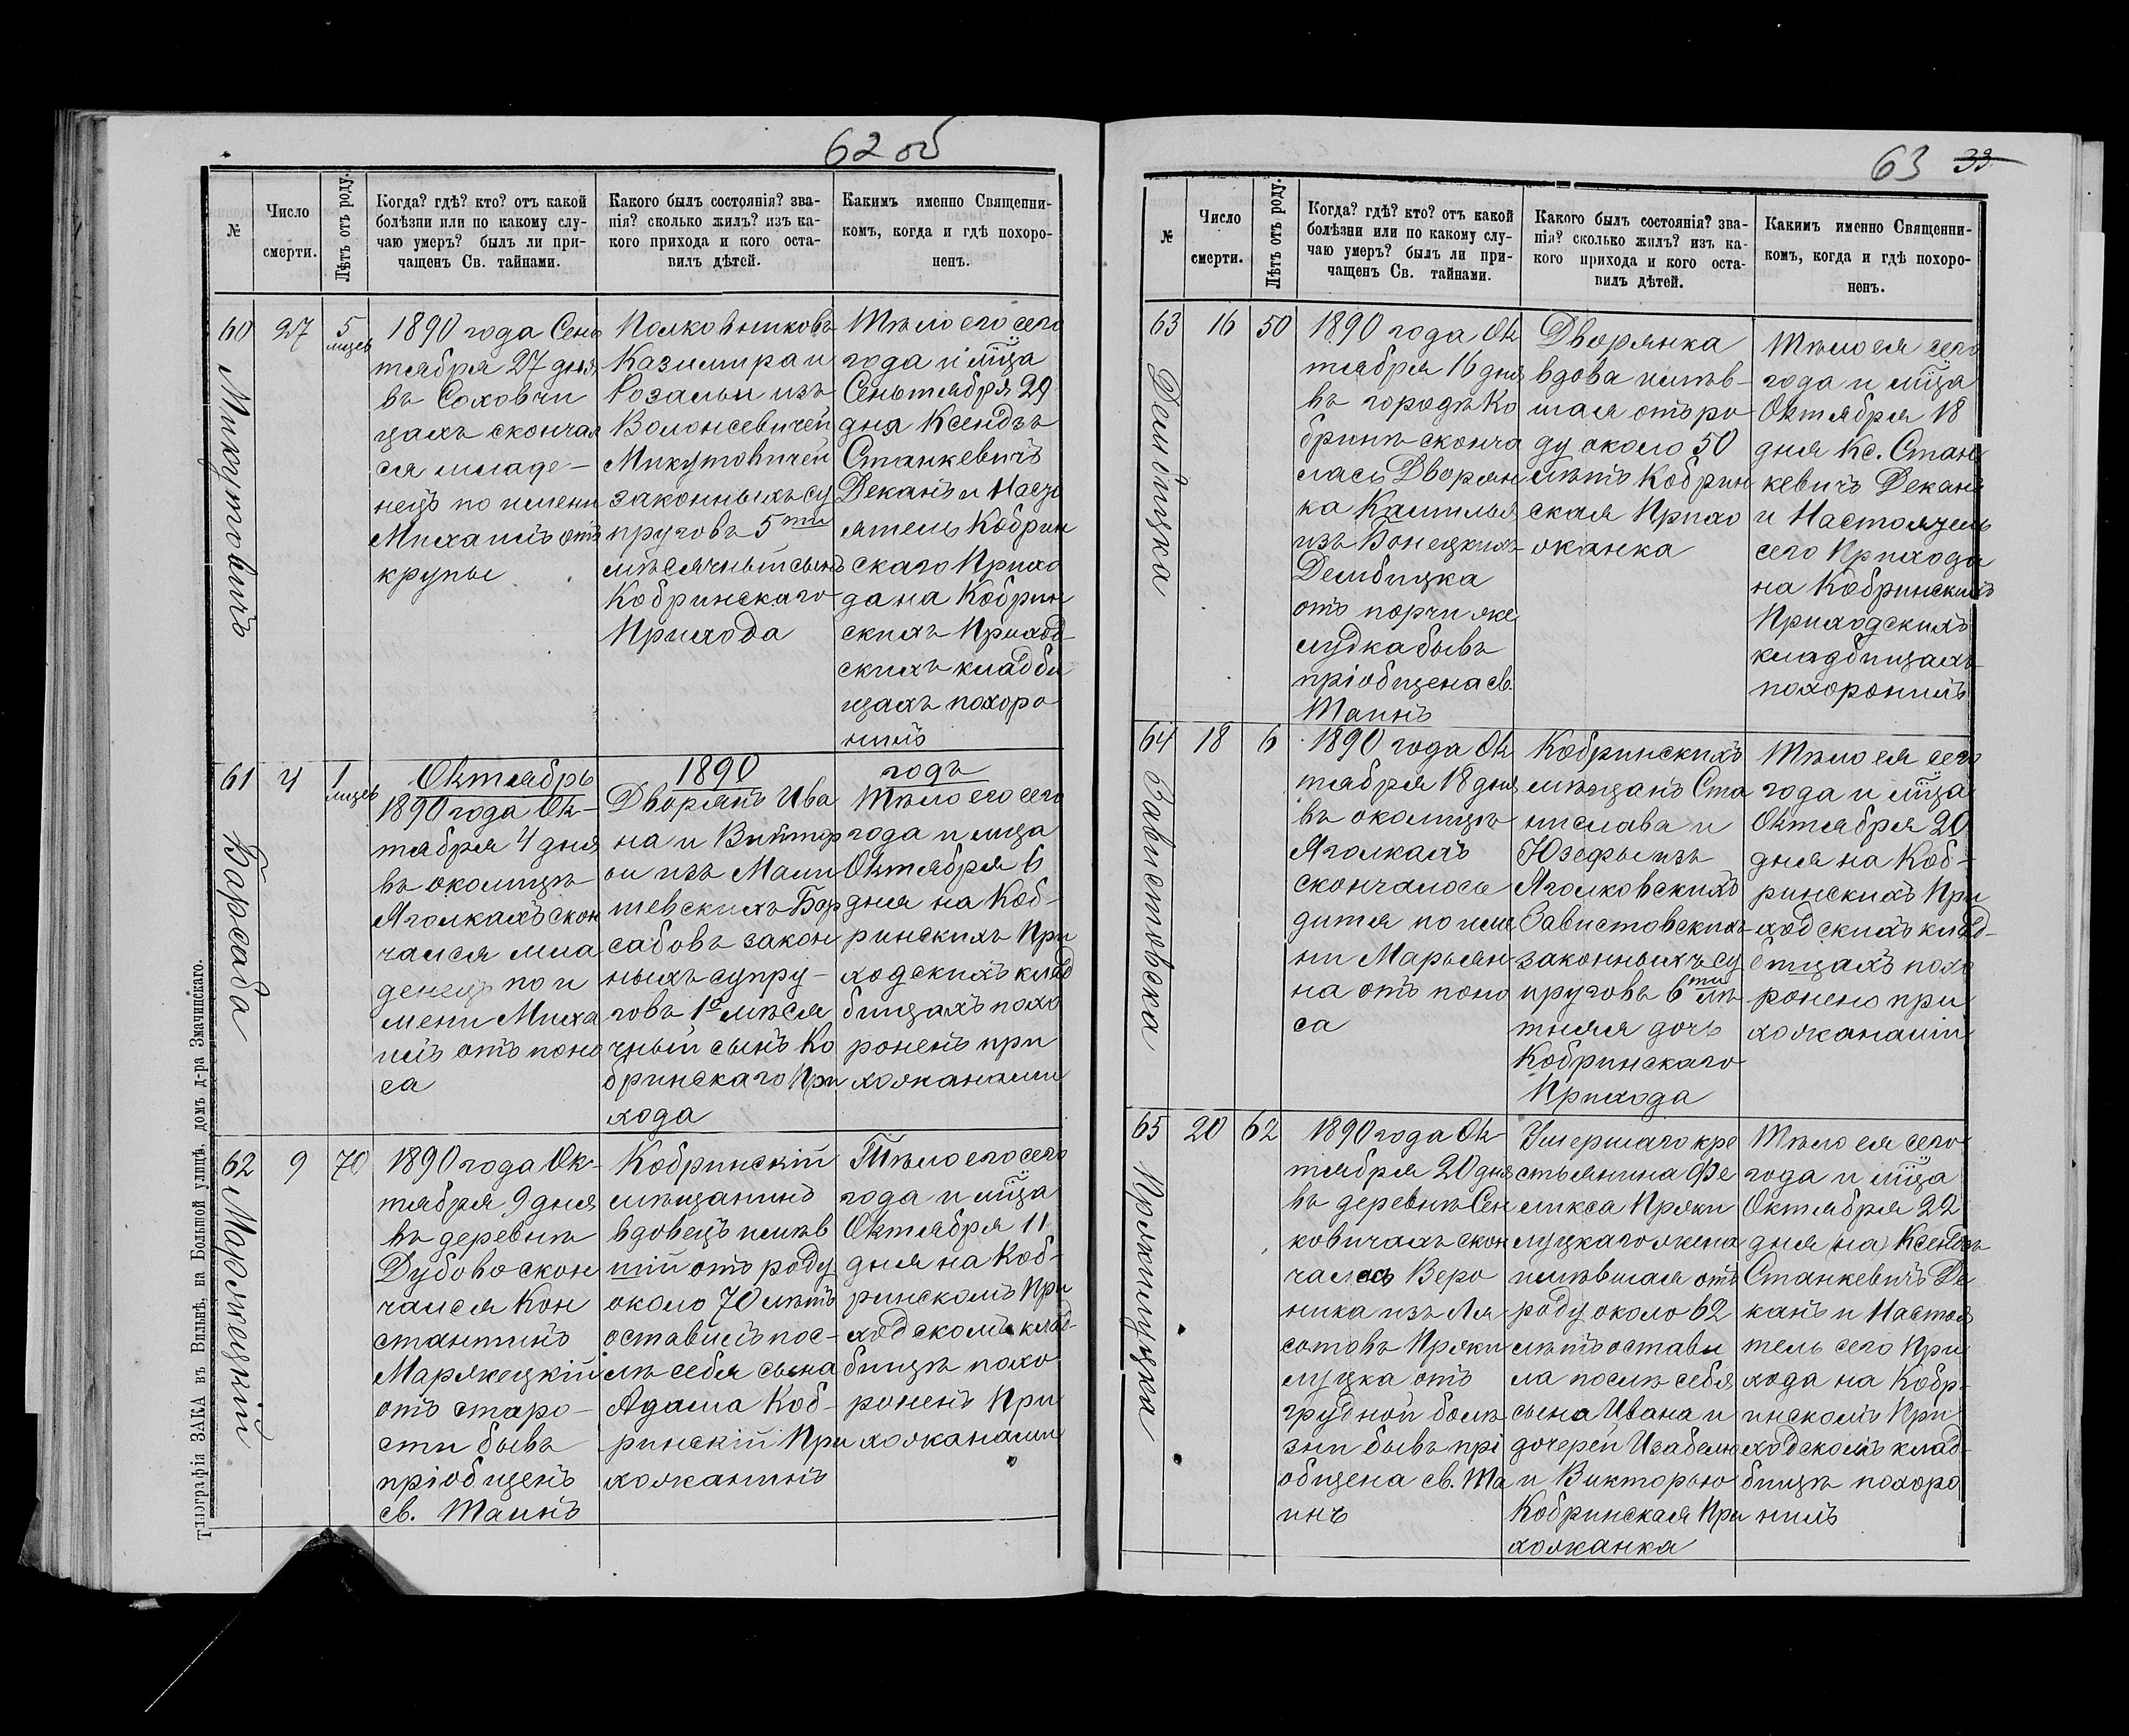 62 об
№
Число
смерти.
Лѣтъ отъ роду.
Когда? гдѣ? кто? отъ какой
болѣзни или по какому слу-
чаю умеръ? былъ ли при-
чащенъ Св. тайнами.
Какого былъ состоянія? зва-
нія? сколько жилъ? изъ ка-
кого прихода и кого оста-
вилъ дѣтей.
Какимъ именно Священни-
комъ, когда и гдѣ похоро-
ненъ.
60
Микутовичъ
27
5
мцев
1890 года Сень
тября 27 дня
въ Соховчи
цахъ скончал
ся младе-
нецъ по имени
Михаилъ отъ
крупы
Полковниковъ
Казимира и
Розальи изъ
Микутовичей
законныхъ су
пруговъ 5ти
мѣсячный сынъ
Кобринскаго
Прихода
Тѣло его сего
года и мца
Сентября 29
дня Ксендзъ
Станкевичъ
Деканъ и Насто
ятель Кобрин
скаго Прихо
да на Кобрин
скихъ Приход
скихъ кладби
щахъ похоро
нилъ
61
Барсаба
4
1
мцев
Октябрь
1890 года Ок-
тября 4 дня
въ околицѣ
Яголкахъ скон
чался мла
денецъ по и
мени Миха
илъ отъ поно
са
1890
Дворянъ Ива
на и Виктор
іи изъ Мали
шевскихъ Бар
сабовъ закон
ныхъ супру-
говъ 1о мѣся
чный сынъ Ко
бринскаго При
хода
годъ
Тѣло его сего
года и мца
Октября 6
дня на Коб-
ринскихъ При
ходскихъ клад
бищахъ похо
роненъ при
хожанами
62
Маржецкій
9
70
1890 года Ок-
тября 9 дня
въ деревнѣ
Дубово скон
чался Кон
стантинъ
Маржецкій
отъ старо-
сти бывъ
пріобщенъ
св. Таинъ
Кобринскій
мѣщанинъ
вдовецъ имѣв
шій отъ роду
около 70 лѣтъ
оставилъ пос-
лѣ себя сына
Адама Коб-
ринскій При
хожанинъ
Тѣло его сего
года и мца
Октября 11
дня на Коб-
ринскомъ При
ходскомъ клад-
бищѣ похо
роненъ При
хожанами
Типографія ЗАКА въ Вильнѣ, на Большой улицѣ, домъ д-ра Змачинскаго.
63 33
№
Число
смерти.
Лѣтъ отъ роду.
Когда? гдѣ? кто? отъ какой
болѣзни или по какому слу-
чаю умеръ? былъ ли при-
чащенъ Св. тайнами.
Какого былъ состоянія? зва-
нія? сколько жилъ? изъ ка-
кого прихода и кого оста-
вилъ дѣтей.
Какимъ именно Священни-
комъ, когда и гдѣ похоро-
ненъ.
63
Дембицка
16
50
1890 года Ок
тября 16 дня
въ городѣ Ко
бринѣ сконча
лась Дворян
ка Камилья
изъ Вонецкихъ
Дембицка
отъ порчи же
лудка бывъ
пріобщена св.
Таинъ
Дворянка
вдова имѣв-
шая отъ ро-
ду около 50
лѣтъ Кобрин
ская Прихо
жанка
Тѣло ея сего
года и мца
Октября 18
дня Кс. Стан
кевичъ Деканъ
и Настоятель
сего Прихода
на Кобринскихъ
Приходскихъ
кладбищахъ
похоронилъ
64
Завистовска
18
6
1890 года Ок
тября 18 дня
въ околицѣ
Яголкахъ
скончалось
дитя по име
ни Марьян
на отъ поно
са
Кобринскихъ
мѣщанъ Ста
нислава и
Юзефы изъ
Яголковскихъ
Завистовскихъ
законныхъ су
пруговъ 6ти лѣ
тняя дочь
Кобринскаго
Прихода
Тѣло ея сего
года и мца
Октября 20
дня на Коб-
ринскихъ При
ходскихъ клад-
бищахъ похо
ронено при
хожанами
65
Пржилуцка
20
62
1890 года Ок
тября 20 дня
въ деревнѣ Сен
ковичахъ скон
чалась Веро
ника изъ Ля
сотовъ Пржи
луцка отъ
грудной болѣ
зни бывъ прі
общена св. Та
инъ
Умершаго кре
стьянина Фе
ликса Пржи
луцкаго жена
имѣвшая отъ
роду около 62
лѣтъ остави
ла послѣ себя
сына Ивана и
дочерей Изабелю
и Викторью
Кобринская При
хожанка
Тѣло ея сего
года и мца
Октября 22
дня (на) Ксендзъ
Станкевичъ Де
канъ и Настоя
тель сего При
хода на Кобр-
инскомъ При
ходскомъ клад-
бищѣ похоро
нилъ